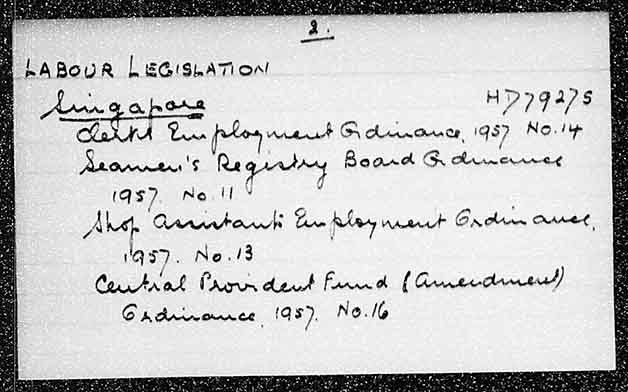 2.
LABOUR LEGISLATION
Singapore HD7927S
Clerks Employment Ordinance, 1957 No.14
Seamen's Registry Board Ordinance
1957. No 11
Shop Assistants Employment Ordinance,
1957. No.13
Central Provident Fund (Amendment)
Ordinance, 1957. No.16